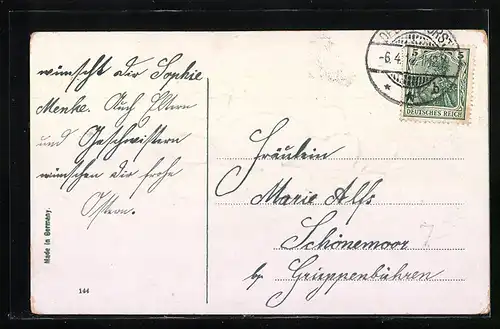 wünscht dir Sophie
Menke. Auch Eltern
und Geschwistern
wünschen dir frohe
Ostern.
Made in Germany.
144
-6.4.
5 5
DEUTSCHES REICH
Fräulein
Marie Alfs
Schönemoor
bei Grüppenbühren